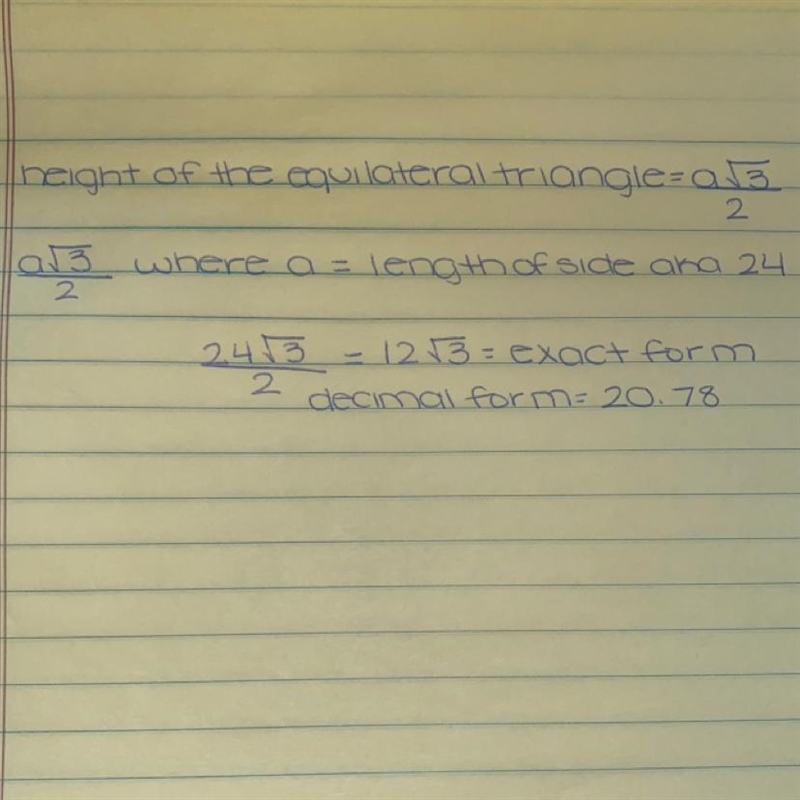 height of the equilateral triangle = a√3/2
a√3/2 where a = length of side and 24
24√3/2 = 12√3 = exact form
decimal form = 20.78